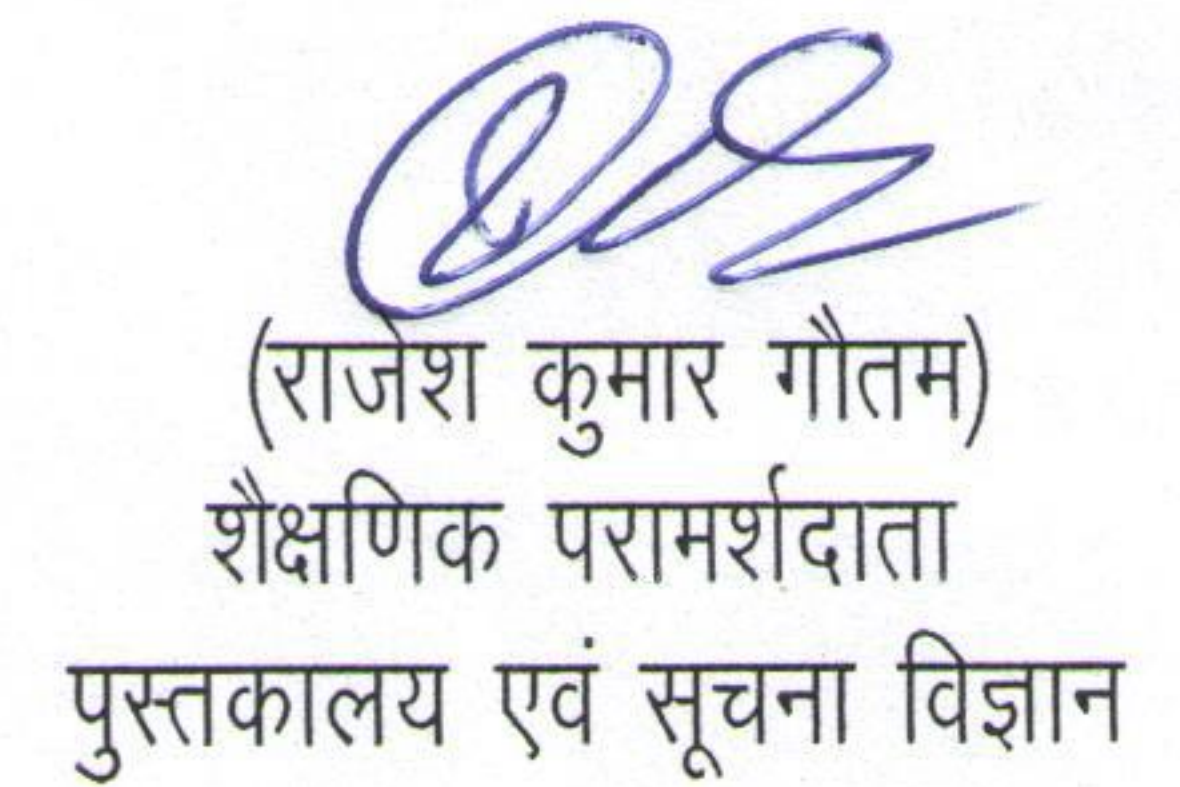 (राजेश कुमार गौतम)
शैक्षणिक परामर्शदाता
पुस्तकालय एवं सूचना विज्ञान